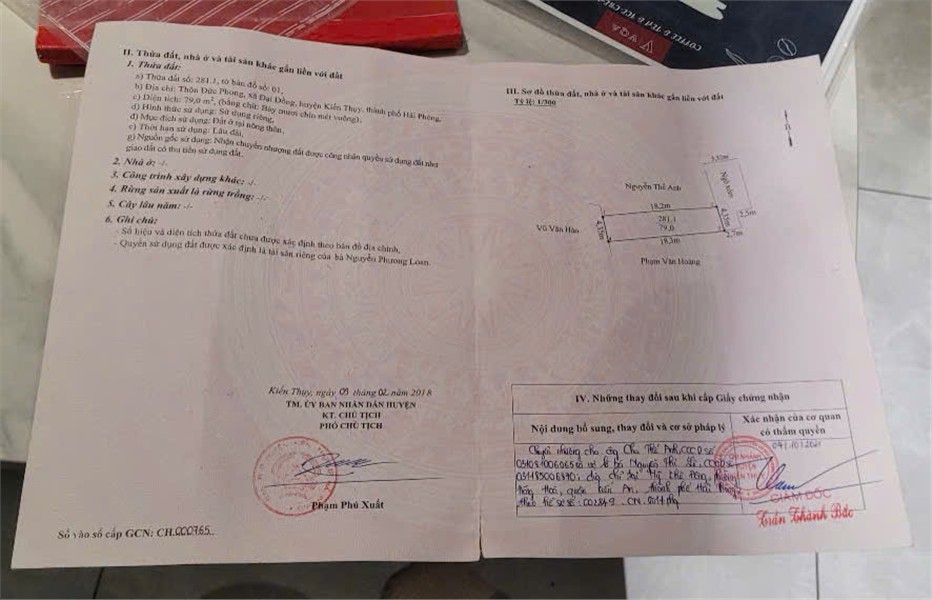 II. Thửa đất, nhà ở và tài sản khác gắn liền với đất
1. Thửa đất:
a) Thửa đất số: 281.1, tờ bản đồ số: 01,
b) Địa chỉ: Thôn Đức Phong, xã Đại Đồng, huyện Kiến Thụy, thành phố Hải Phòng,
c) Diện tích: 79,0 m², (bằng chữ: Bảy mươi chín mét vuông),
d) Hình thức sử dụng: Sử dụng riêng,
đ) Mục đích sử dụng: Đất ở tại nông thôn,
e) Thời hạn sử dụng: Lâu dài,
g) Nguồn gốc sử dụng: Nhận chuyển nhượng đất được công nhận quyền sử dụng đất như
giao đất có thu tiền sử dụng đất.
2. Nhà ở: -/-
3. Công trình xây dựng khác: -/-
4. Rừng sản xuất là rừng trồng: -/-
5. Cây lâu năm: -/-
6. Ghi chú:
- Số hiệu và diện tích thửa đất chưa được xác định theo bản đồ địa chính,
- Quyền sử dụng đất được xác định là tài sản riêng của bà Nguyễn Phương Loan.
Kiến Thụy, ngày 05 tháng 02 năm 2018
TM. ỦY BAN NHÂN DÂN HUYỆN
KT. CHỦ TỊCH
PHÓ CHỦ TỊCH
Phạm Phú Xuất
Số vào sổ cấp GCN: CH.000765
COFFEE & TEA & ICE
III. Sơ đồ thửa đất, nhà ở và tài sản khác gắn liền với đất
Tỷ lệ: 1/500
Nguyễn Thế Anh
Ngõ xóm
18,2m
4,35m
281.1
79,0
4,35m
2,5m
Vũ Văn Hào
18,3m
2,7m
Phạm Văn Hoàng
IV. Những thay đổi sau khi cấp Giấy chứng nhận
Nội dung bổ sung, thay đổi và cơ sở pháp lý
Xác nhận của cơ quan
có thẩm quyền
Chuyển nhượng cho ông Chu Thế Anh, CCCD số
và bà Nguyễn Thị
địa chỉ tại
quận Kiến An, thành phố Hải Phòng
theo hồ sơ số
GIÁM ĐỐC
Trần Thành Bắc